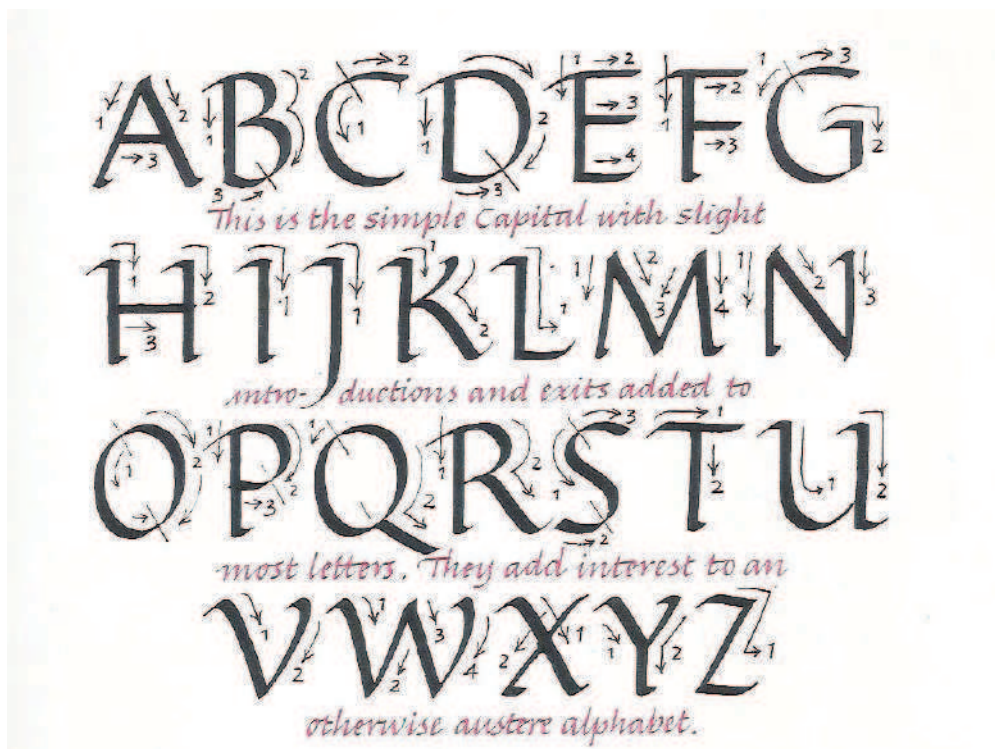 A B C D E F G
This is the simple Capital with slight
H I J K L M N
intro- ductions and exits added to
O P Q R S T U
most letters. They add interest to an
V W X Y Z
otherwise austere alphabet.